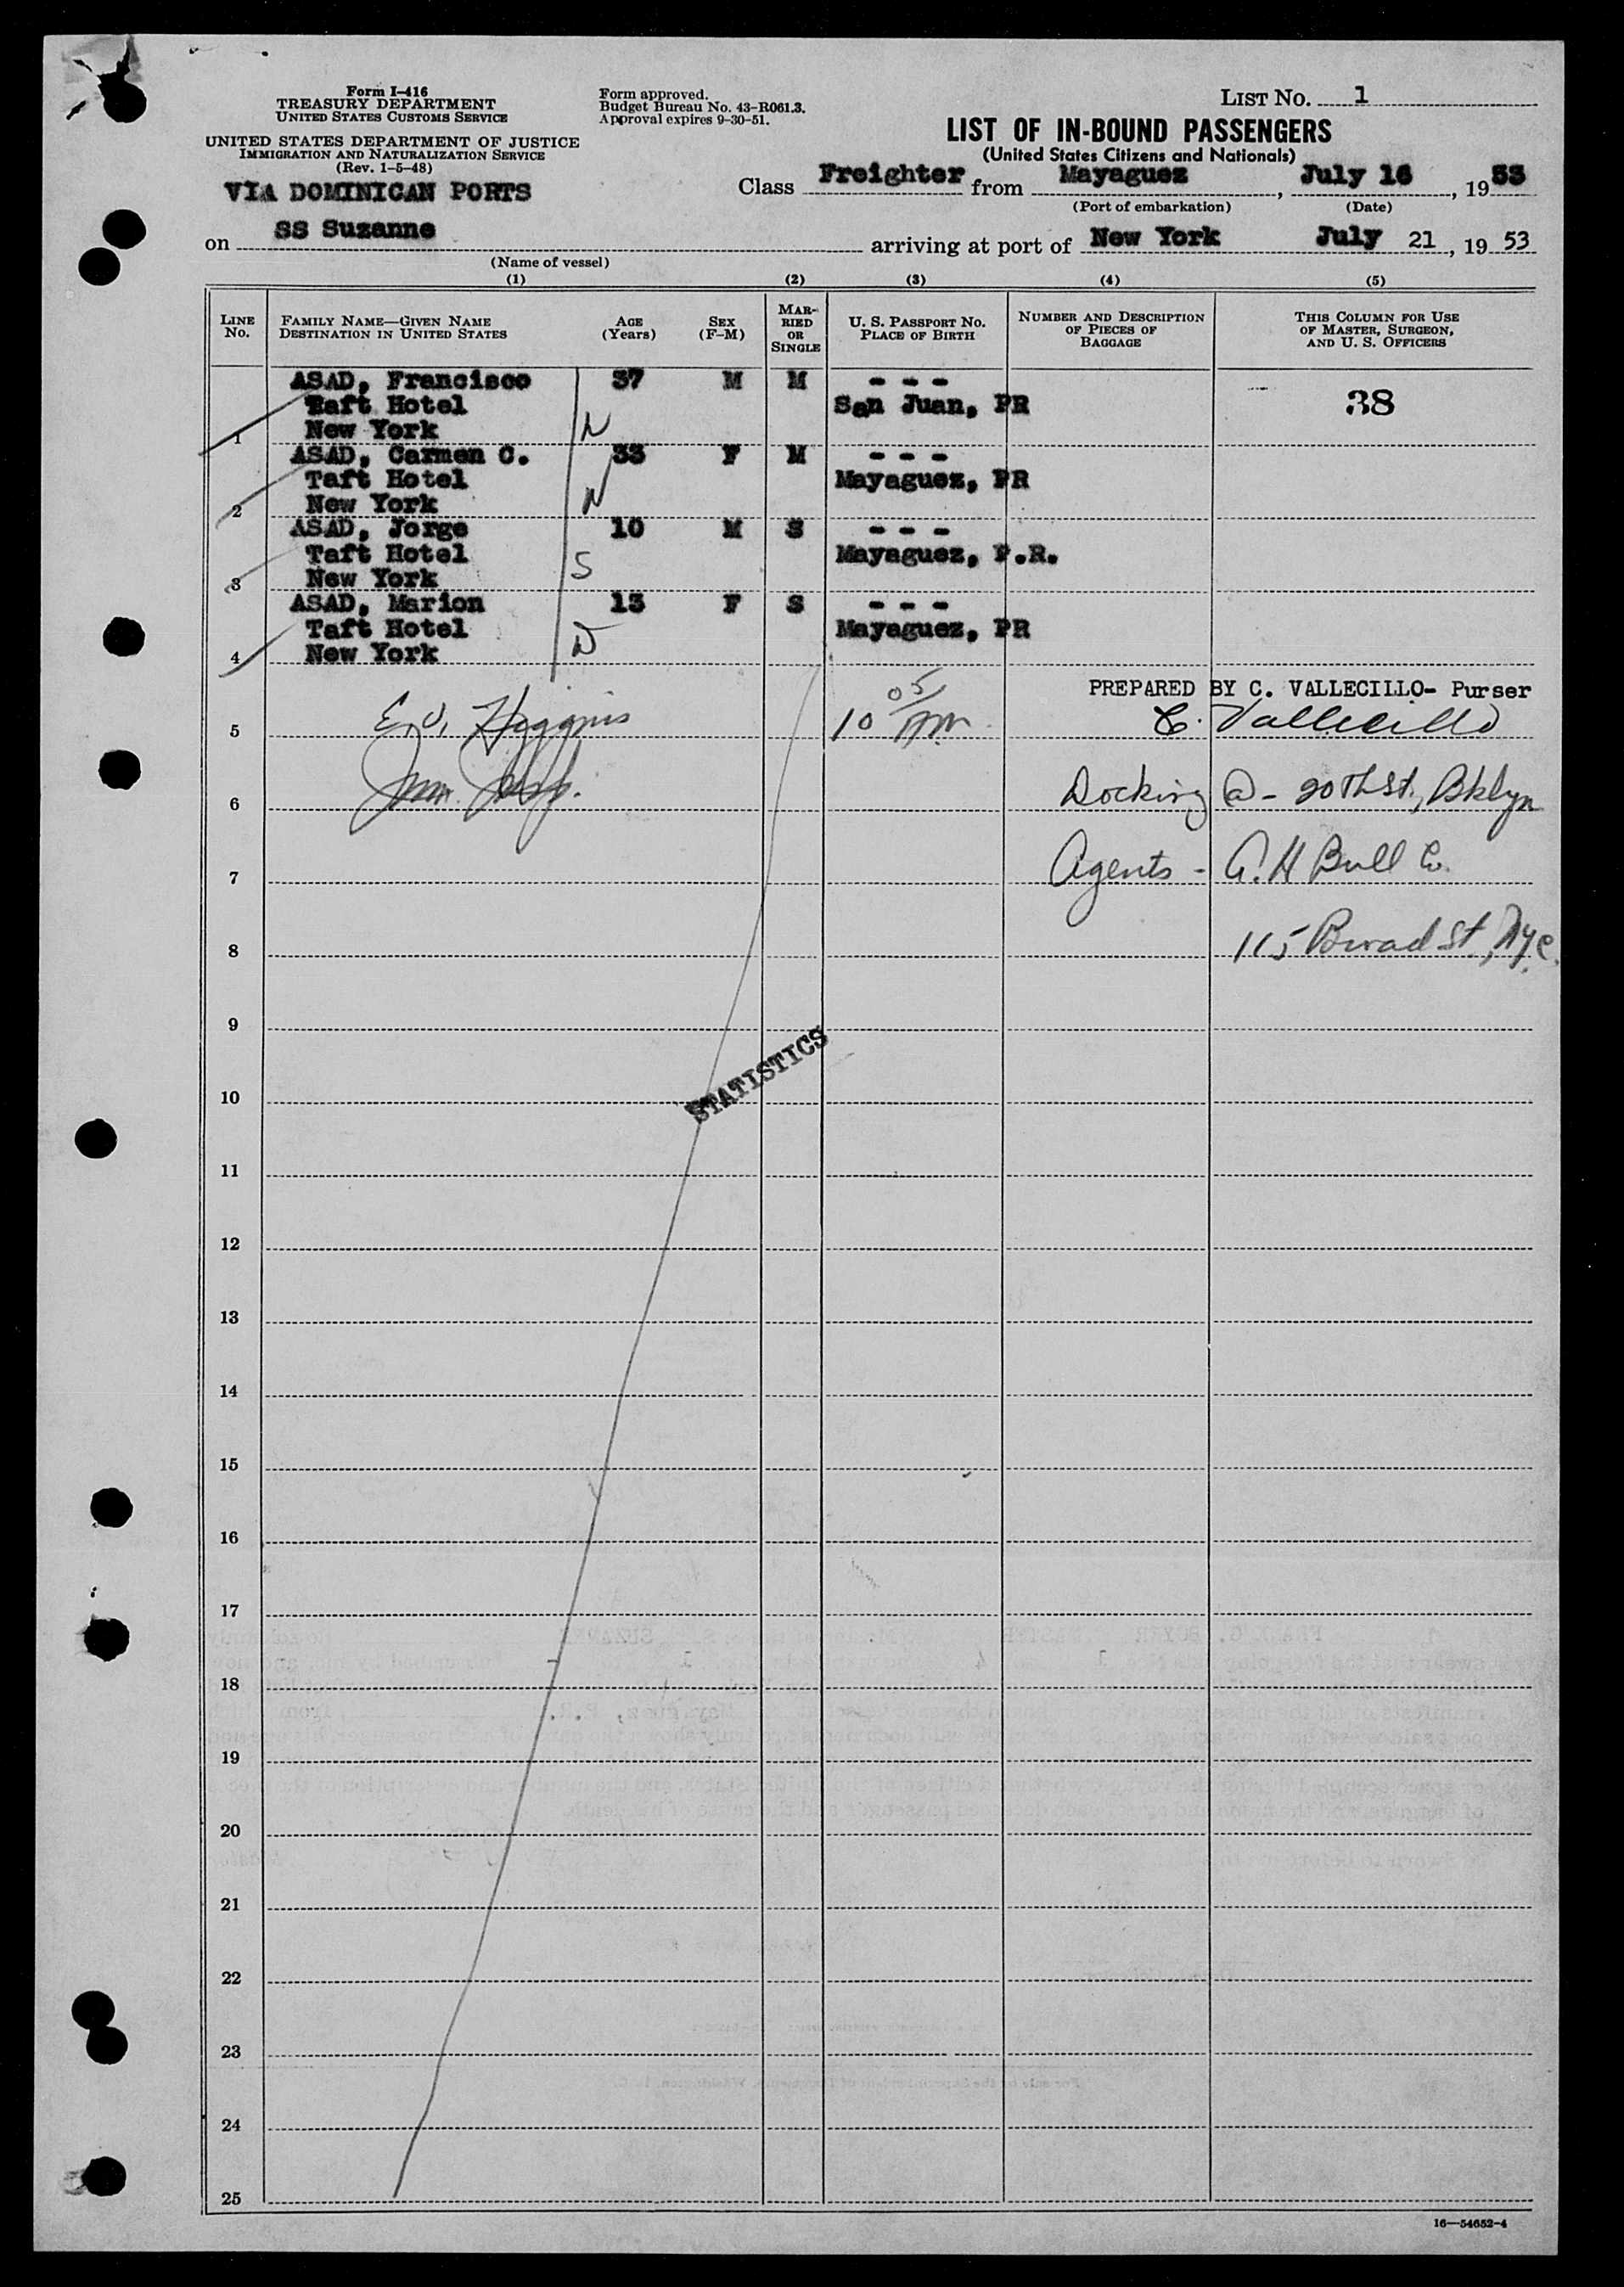 Form I-416
TREASURY DEPARTMENT
UNITED STATES CUSTOMS SERVICE
UNITED STATES DEPARTMENT OF JUSTICE
IMMIGRATION AND NATURALIZATION SERVICE
(Rev. 1-5-48)
Form approved.
Budget Bureau No. 43-R061.3.
Approval expires 9-30-51.
LIST NO. 1
LIST OF IN-BOUND PASSENGERS
(United States Citizens and Nationals)
VIA DOMINICAN PORTS
Class Freighter from Mayaguez, July 16, 1953
(Port of embarkation) (Date)
on SS Suzanne arriving at port of New York July 21, 1953
(Name of vessel)
(1) (2) (3) (4) (5)
LINE NO.
FAMILY NAME—GIVEN NAME
DESTINATION IN UNITED STATES
AGE (Years)
SEX (F-M)
MARRIED OR SINGLE
U. S. PASSPORT NO.
PLACE OF BIRTH
NUMBER AND DESCRIPTION OF PIECES OF BAGGAGE
THIS COLUMN FOR USE OF MASTER, SURGEON, AND U. S. OFFICERS
ASAD, Francisco 37 M M - - - 38
Taft Hotel San Juan, PR
1 New York
ASAD, Carmen C. 33 F M - - -
Taft Hotel Mayaguez, PR
2 New York
ASAD, Jorge 10 M S - - -
Taft Hotel Mayaguez, P.R.
3 New York S
ASAD, Marion 13 F S - - -
Taft Hotel Mayaguez, PR
4 New York
PREPARED BY C. VALLECILLO- Purser
5 E.J. Higgins 10 05 AM C. Vallecillo
6 Imm. Insp. Docking @ - 20th St., Bklyn
7 Agents - A. H Bull Co.
8 115 Broad St., NYC.
9
STATISTICS
10
11
12
13
14
15
16
17
18
19
20
21
22
23
24
25
16—54652-4